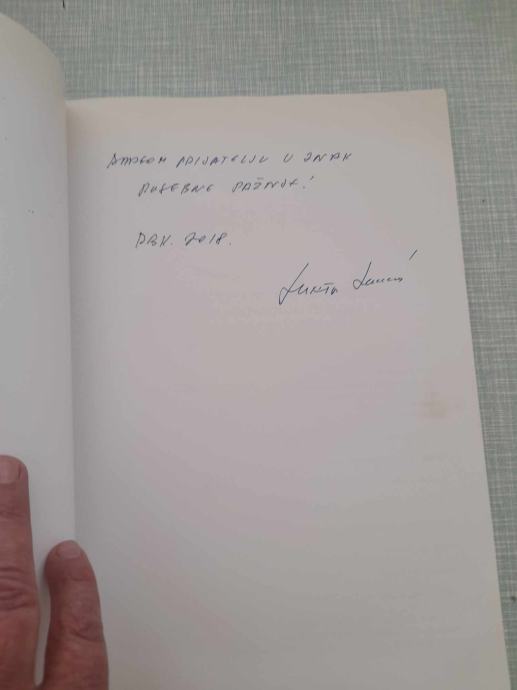 DRAGOM PRIJATELJU U ZNAK
POSEBNE PAŽNJE!
DBK. 2018.